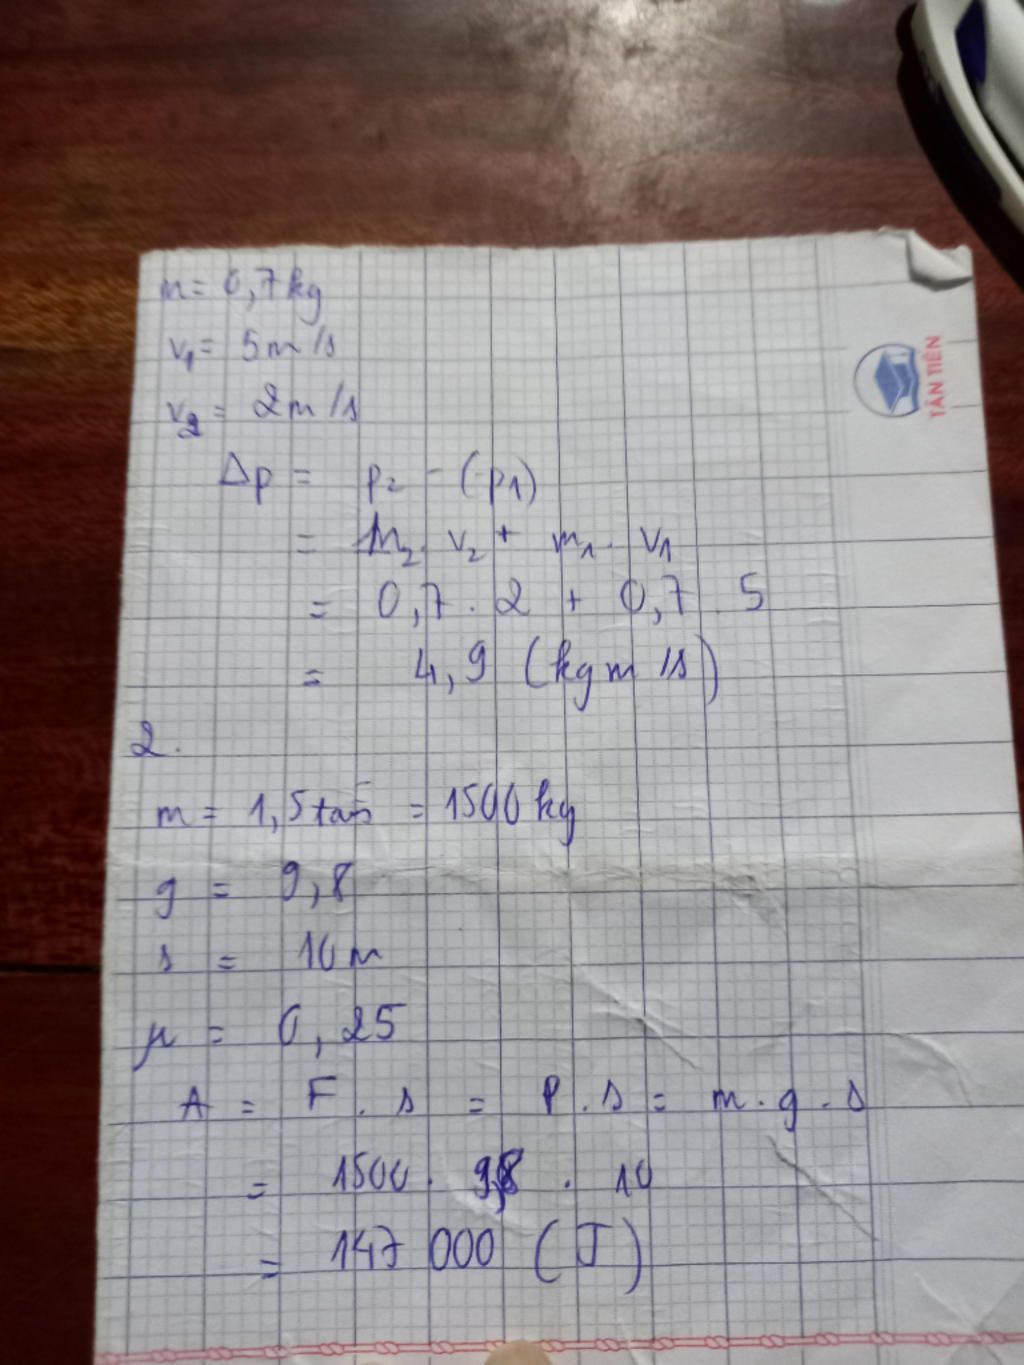 m = 0,7 kg
v1 = 5 m/s
v2 = 2 m/s
TÂN TIẾN
Δp = p2 - (-p1)
= m2. v2 + m1. v1
= 0,7 . 2 + 0,7 . 5
= 4,9 (kg m/s)
2.
m = 1,5 tấn = 1500 kg
g = 9,8
s = 10 m
μ = 0,25
A = F . s = P . s = m . g . s
= 1500 . 9,8 . 10
= 147 000 (J)